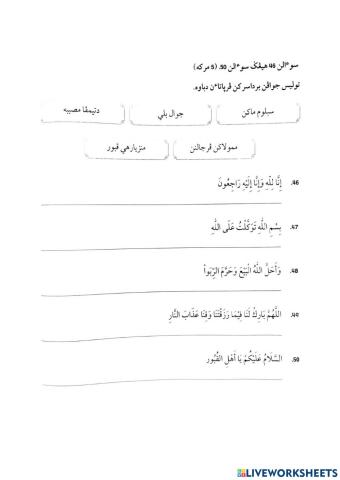 سوءالن 46 هيڠݢ سوءالن 50. (5 مركه)
توليس جواڤن برداسركن ڤرڽاتاءن دباوه.
سبلوم ماكن
جوال بلي
دتيمڤا مصيبه
ممولاكن ڤرجالنن
منزيارهي قبور
46. إِنَّا لِلّٰهِ وَإِنَّا إِلَيْهِ رَاجِعُونَ
47. بِسْمِ اللّٰهِ تَوَكَّلْتُ عَلَى اللّٰهِ
48. وَأَحَلَّ اللّٰهُ الْبَيْعَ وَحَرَّمَ الرِّبَواْ
49. اللّٰهُمَّ بَارِكْ لَنَا فِيْمَا رَزَقْتَنَا وَقِنَا عَذَابَ النَّارِ
50. السَّلَامُ عَلَيْكُمْ يَا أَهْلَ الْقُبُورِ
LIVEWORKSHEETS